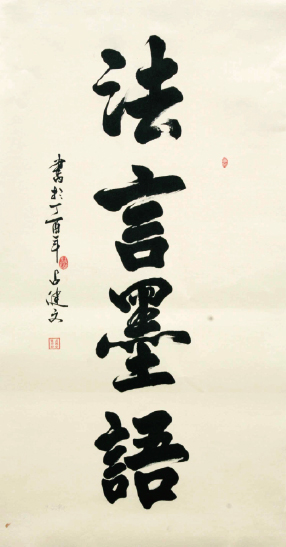 法言墨語
書於丁酉年占健文